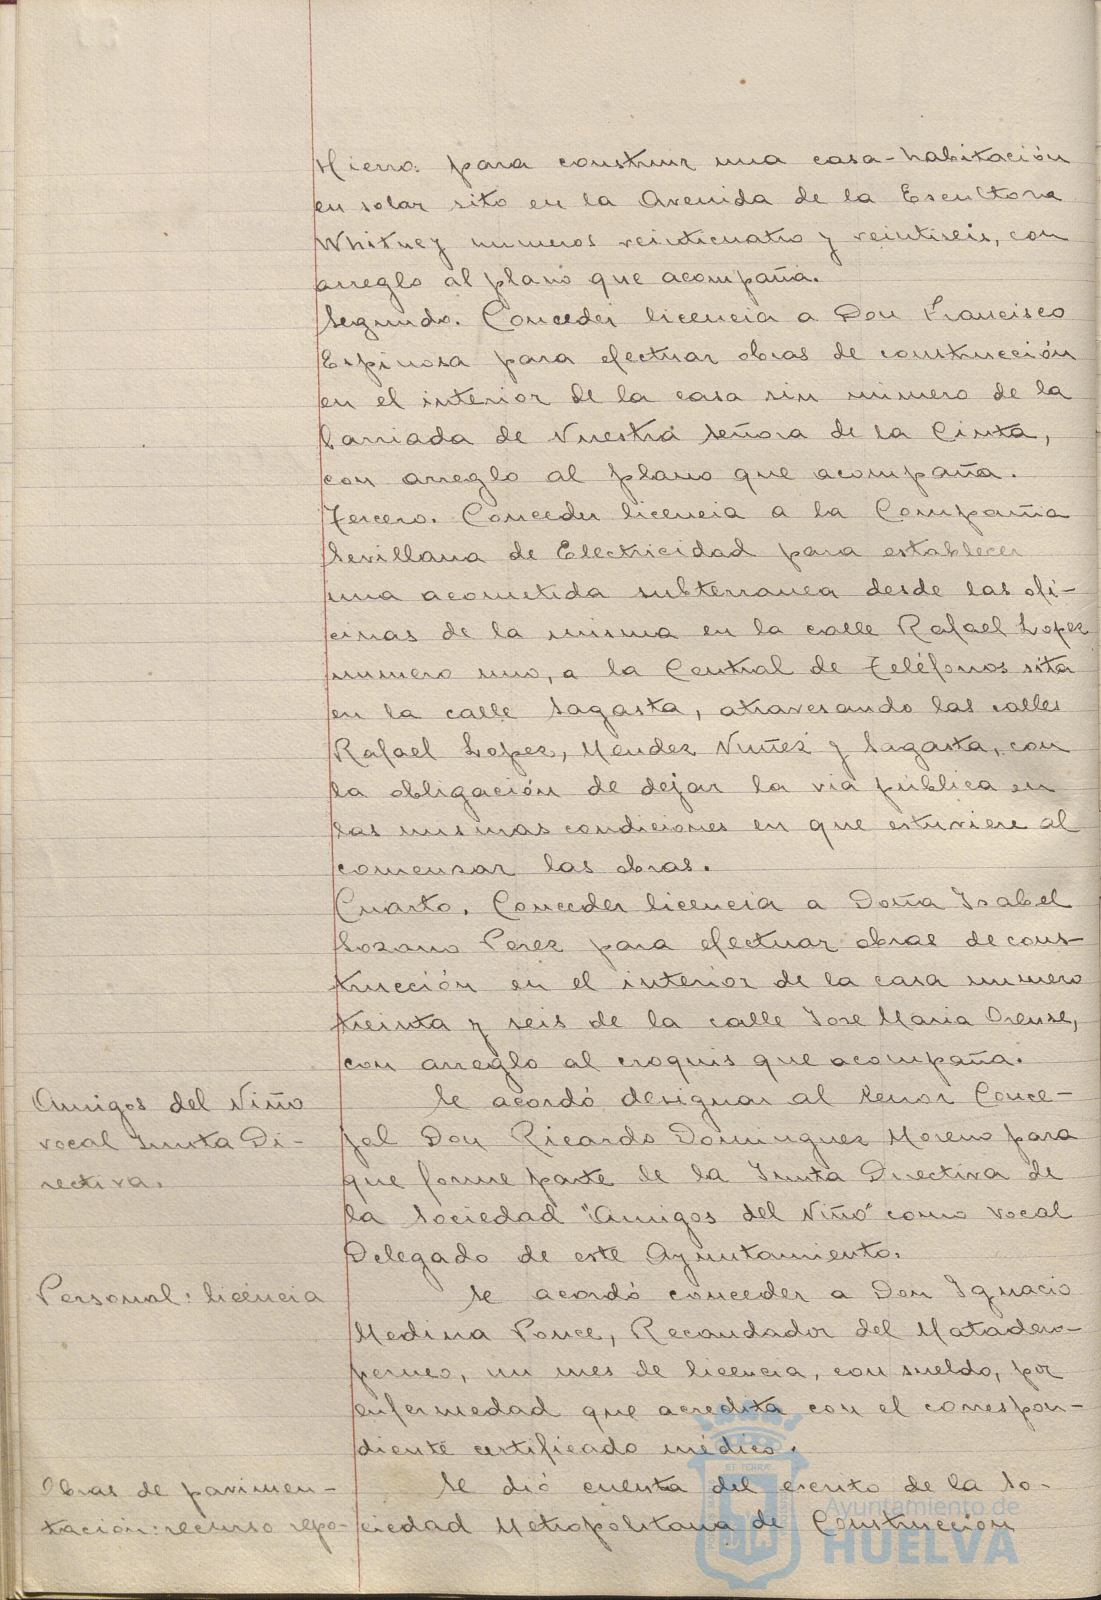 Hierro para construir una casa-habitación
en solar sito en la Avenida de la Escultora
Whitney numeros veinticuatro y veintiseis, con
arreglo al plano que acompaña.
Segundo. Conceder licencia a Don Francisco
Espinosa para efectuar obras de construcción
en el interior de la casa sin numero de la
barriada de Nuestra Señora de la Cinta,
con arreglo al plano que acompaña.
Tercero. Conceder licencia a la Compañia
Sevillana de Electricidad para establecer
una acometida subterranea desde las ofi-
cinas de la misma en la calle Rafael Lopez
numero uno, a la Central de Teléfonos sita
en la calle Sagasta, atravesando las calles
Rafael Lopez, Mendez Nuñez y Sagasta, con
la obligación de dejar la via pública en
las mismas condiciones en que estuviere al
comenzar las obras.
Cuarto. Conceder licencia a Doña Isabel
Lozano Perez para efectuar obras de cons-
trucción en el interior de la casa numero
treinta y seis de la calle Jose Maria Orense,
con arreglo al croquis que acompaña.
Amigos del Niño
vocal Junta Di-
rectiva.
Se acordó designar al Senor Conce-
jal Don Ricardo Dominguez Moreno para
que forme parte de la Junta Directiva de
la Sociedad "Amigos del Niño" como vocal
Delegado de este Ayuntamiento.
Personal: licencia
Se acordó conceder a Don Ignacio
Medina Ponce, Recaudador del Matadero-
perneo, un mes de licencia, con sueldo, por
enfermedad que acredita con el correspon-
diente certificado médico.
Obras de pavimen-
tación: recurso repo-
Se dió cuenta del escrito de la So-
ciedad Metropolitana de Construccion
Ayuntamiento de
HUELVA